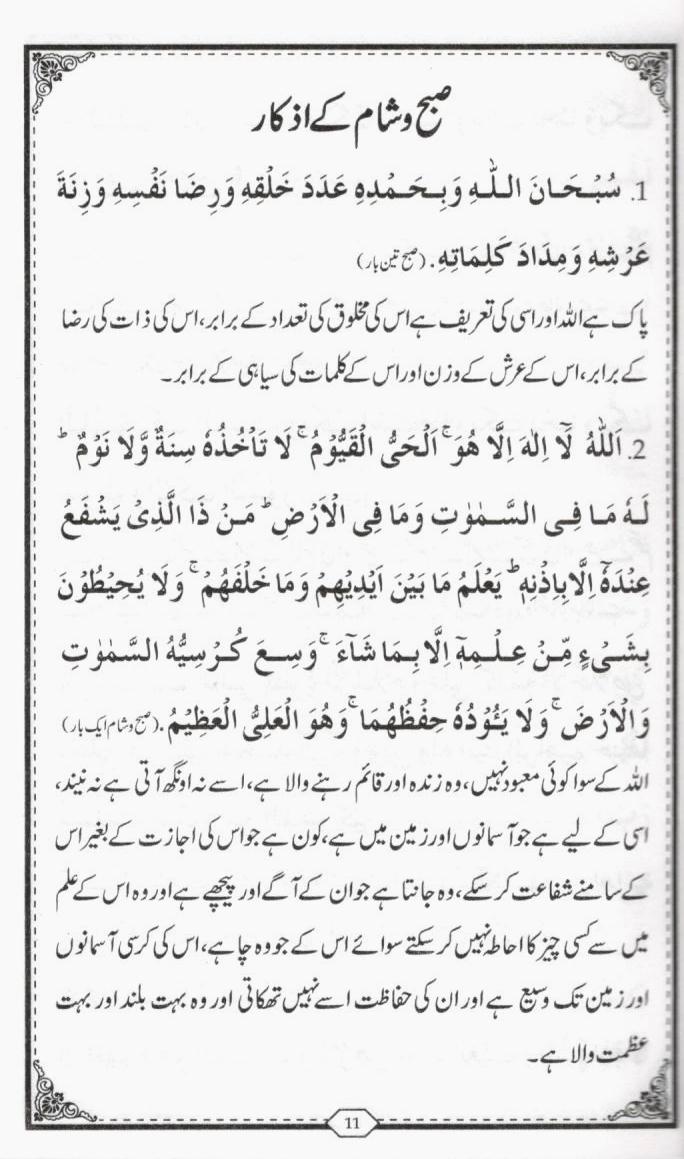 صبح و شام کے اذکار
1. سُبْحَانَ اللّٰهِ وَبِحَمْدِهِ عَدَدَ خَلْقِهِ وَرِضَا نَفْسِهِ وَزِنَةَ
عَرْشِهِ وَمِدَادَ كَلِمَاتِهِ. (صبح تین بار)
پاک ہے اللہ اور اسی کی تعریف ہے اس کی مخلوق کی تعداد کے برابر، اس کی ذات کی رضا
کے برابر، اس کے عرش کے وزن اور اس کے کلمات کی سیاہی کے برابر۔
2. اَللّٰهُ لَآ اِلٰهَ اِلَّا هُوَ ۚ اَلْحَىُّ الْقَيُّوْمُ ۚ لَا تَاْخُذُهٗ سِنَةٌ وَّلَا نَوْمٌ ؕ
لَهٗ مَا فِى السَّمٰوٰتِ وَمَا فِى الْاَرْضِ ؕ مَنْ ذَا الَّذِىْ يَشْفَعُ
عِنْدَهٗٓ اِلَّا بِاِذْنِهٖ ؕ يَعْلَمُ مَا بَيْنَ اَيْدِيْهِمْ وَمَا خَلْفَهُمْ ۚ وَلَا يُحِيْطُوْنَ
بِشَىْءٍ مِّنْ عِلْمِهٖٓ اِلَّا بِمَا شَآءَ ۚ وَسِعَ كُرْسِيُّهُ السَّمٰوٰتِ
وَالْاَرْضَ ۚ وَلَا يَئُوْدُهٗ حِفْظُهُمَا ۚ وَهُوَ الْعَلِىُّ الْعَظِيْمُ. (صبح و شام ایک بار)
اللہ کے سوا کوئی معبود نہیں، وہ زندہ اور قائم رہنے والا ہے، اسے نہ اونگھ آتی ہے نہ نیند،
اسی کے لیے ہے جو آسمانوں اور زمین میں ہے، کون ہے جو اس کی اجازت کے بغیر اس
کے سامنے شفاعت کر سکے، وہ جانتا ہے جو ان کے آگے اور پیچھے ہے اور وہ اس کے علم
میں سے کسی چیز کا احاطہ نہیں کر سکتے سوائے اس کے جو وہ چاہے، اس کی کرسی آسمانوں
اور زمین تک وسیع ہے اور ان کی حفاظت اسے نہیں تھکاتی اور وہ بہت بلند اور بہت
عظمت والا ہے۔
11